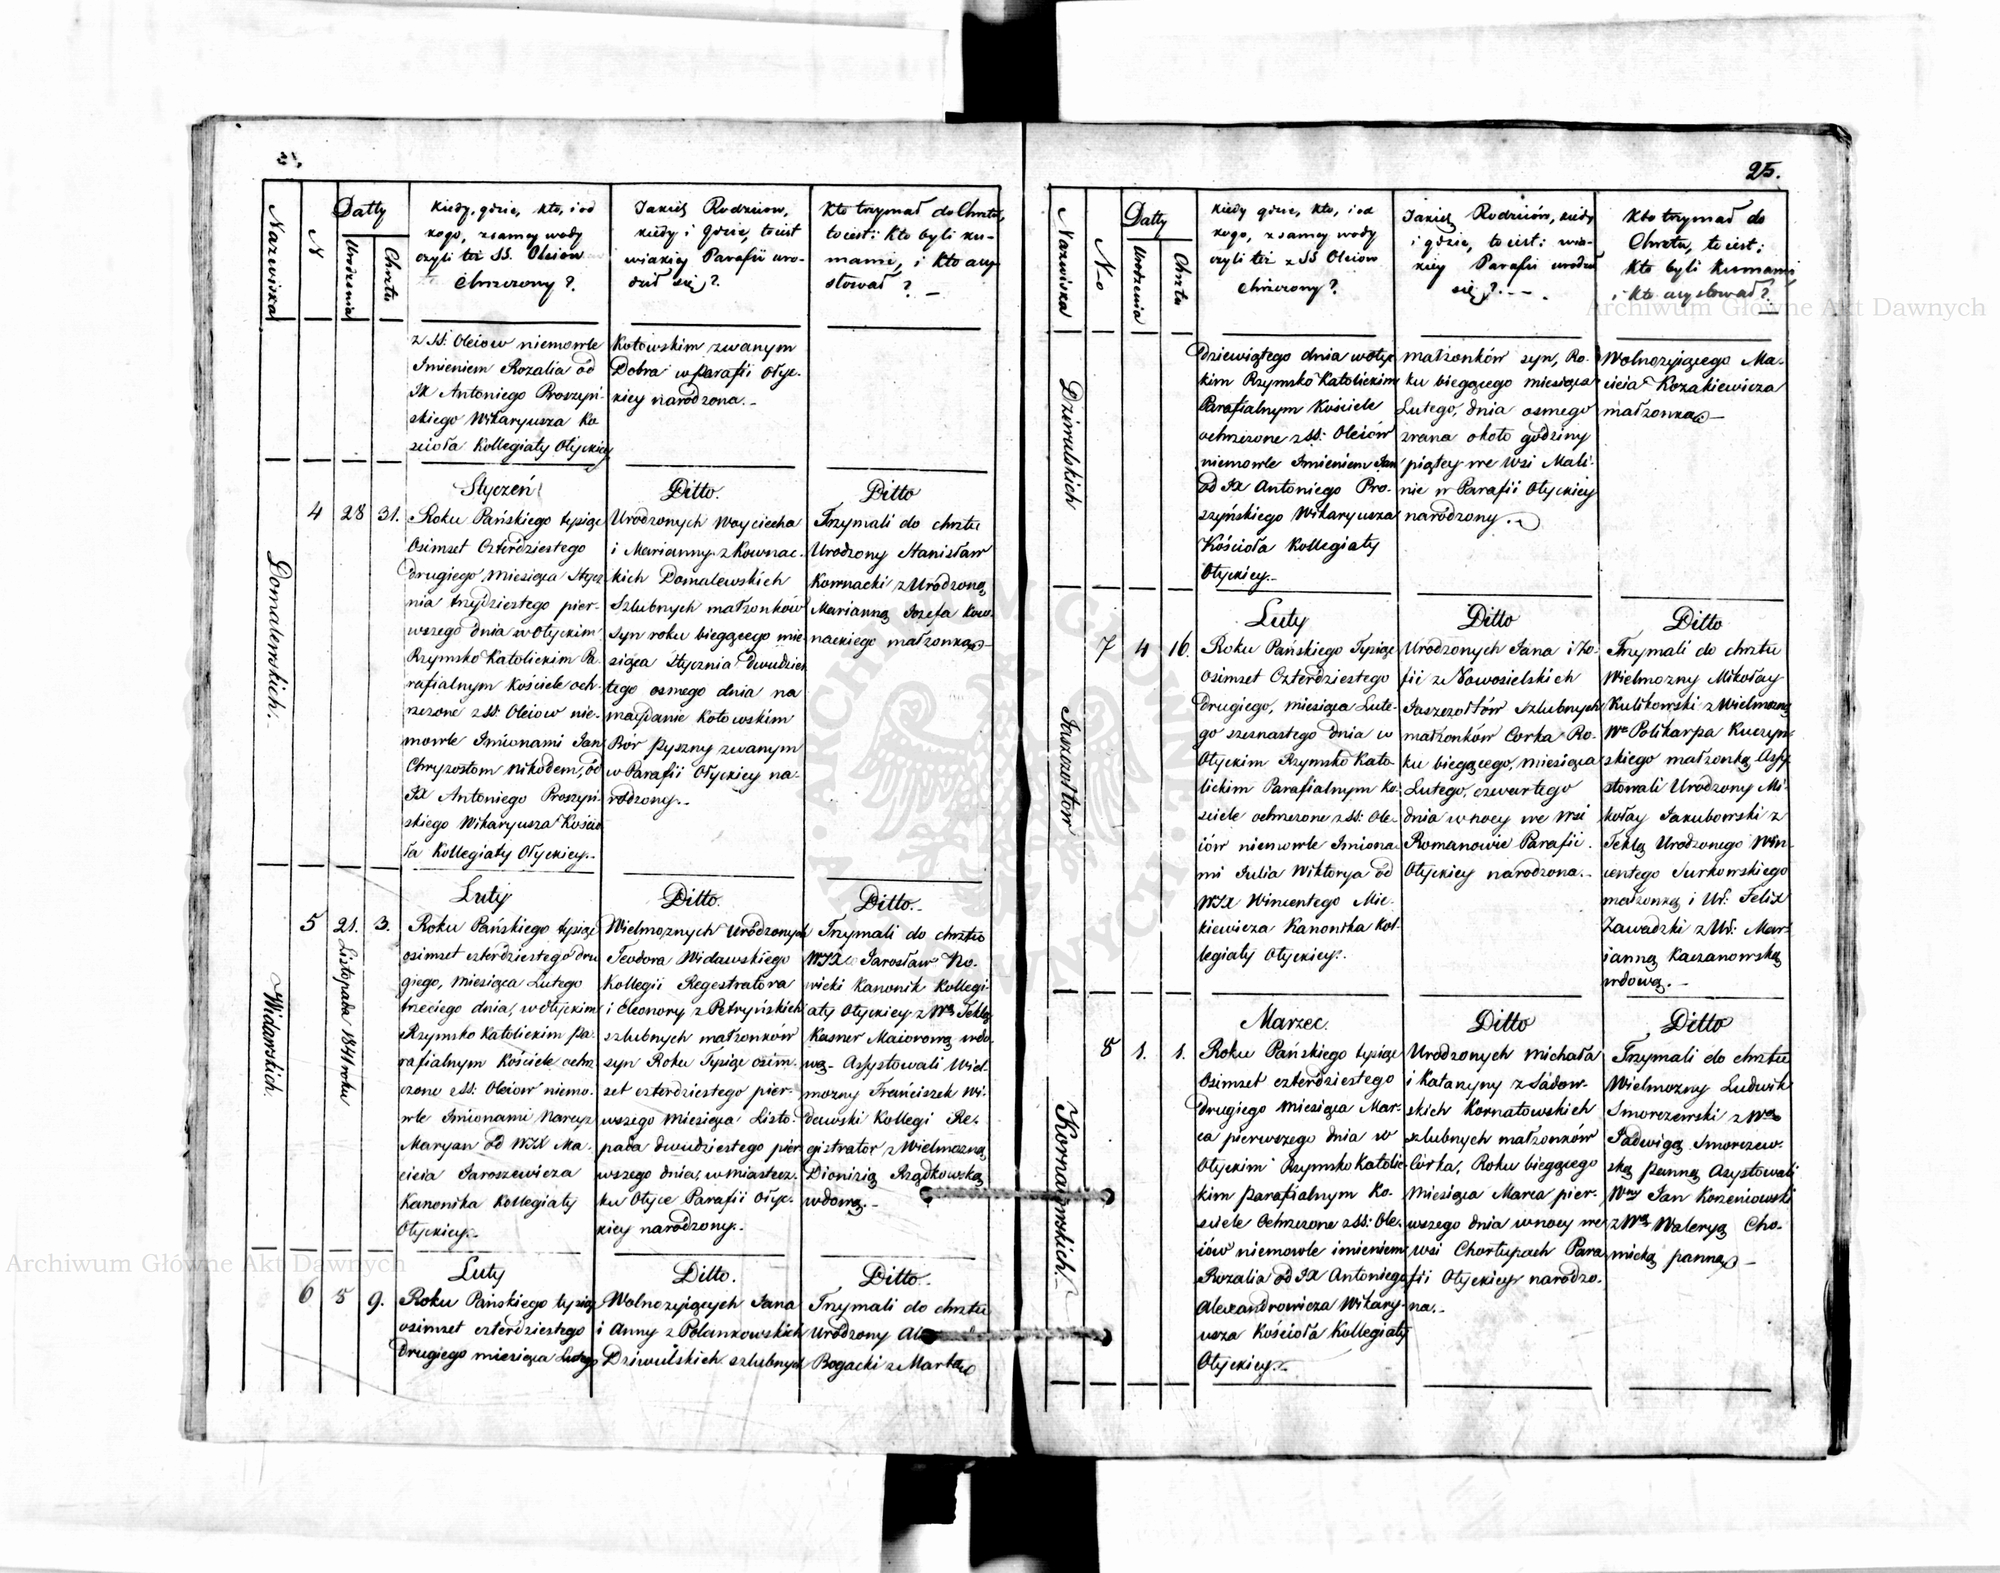 25.
Nazwiska
N
Datty
Urodzenia
Chrztu
Kiedy, gdzie, kto, i od
kogo, z samey wody
czyli też SS. Oleiów
Chrzczony?
Jakich Rodziców,
kiedy i gdzie, to iest
w iakiey Parafii uro-
dził się?
Kto trzymał do Chrztu,
to iest: kto byli ku-
mami, i kto assy-
stował? —
z SS: Oleiow niemowle
Imieniem Rozalia od
JX Antoniego Proszyń-
skiego Wikaryusza Ko-
scioła Kollegiaty Ołyckiey
Kotowskim zwanym
Dobra w Parafii Ołyc-
kiey narodzona.-
Domalewskich.
4
28
31.
Styczeń
Roku Pańskiego tysiąc
Osimset Czterdziestego
drugiego, miesiąca Stycz-
nia trzydziestego pier-
wszego dnia w Ołyckim
Rzymsko Katolickim Pa-
rafialnym Kościele och-
rzczone z SS: Oleiow nie-
mowle Imionami Jan
Chryzostom Nikodem, od
JX Antoniego Proszyń-
skiego Wikaryusza Kościo-
ła Kollegiaty Ołyckiey.-
Ditto.
Urodzonych Woyciecha
i Marianny z Kownac-
kich Domalewskich
Szlubnych małżonków
syn roku biegącego mie-
siąca Stycznia dwudzies-
tego osmego dnia na
maydanie Kotowskim
Bór pyszny zwanym
w Parafii Ołyckiey na-
rodzony.-
Ditto
Trzymali do chrztu
Urodzony Stanisław
Kownacki z Urodzoną
Marianną Jozefa Kow-
nackiego małżonką —
Widawskich.
5
21.
Listopada 1841 roku
3.
Luty
Roku Pańskiego tysiąc
osimset czterdziestego dru
giego, miesiąca Lutego
trzeciego dnia, w Ołyckim
Rzymsko Katolickim Pa-
rafialnym Kościele ochrz
czone z SS: Oleiow niemo-
wle Imionami Narcyz
Maryan od WJX Ma-
cieia Jaroszewicza
Kanonika Kollegiaty
Ołyckiey.-
Ditto.
Wielmożnych Urodzonych
Teodora Widawskiego
Kollegii Regestratora
i Eleonory z Petryńskich
szlubnych małżonków
syn Roku Tysiąc osim-
set czterdziestego pier-
wszego miesiąca Listo-
pada dwudziestego pier
wszego dnia, w miastecz-
ku Ołyce Parafii Ołyc-
kiey narodzony.-
Ditto.-
Trzymali do chrztu
WJX Jarosław No-
wicki Kanonik Kollegi-
aty Ołyckiey z Wą Teklą
Kasner Maiorową wdo-
wą - Assystowali Wiel-
możny Franciszek Wi-
dawski Kollegii Re-
gistrator z Wielmożną
Dionizią Rządkowską
wdową.-
6
8
9.
Luty
Roku Pańskiego tysiąc
osimset czterdziestego
drugiego miesiąca Lutego
Ditto.
Wolnożyjących Jana
i Anny z Polankowskich
Dziwulskich szlubnych
Ditto.-
Trzymali do chrztu
Urodzony
Bogacki z Martą
Nazwiska
N-o
Datty
Urodzenia
Chrztu
Kiedy gdzie, kto, i od
kogo, z samey wody
czyli też z SS Oleiów
Chrzczony?
Jakich Rodziców, kiedy
i gdzie, to iest: w ia-
kiey Parafii urodził
się?
Kto trzymał do
Chrztu, to iest:
kto byli Kumami
i kto assystował?
Dziwulskich
dziewiątego dnia w Ołyc-
kim Rzymsko Katolickim
Parafialnym Kościele
ochrzczone z SS: Oleiów
niemowle Imieniem Jan
od JX Antoniego Pro-
szyńskiego Wikaryusza
Kościoła Kollegiaty
Ołyckiey.-
małżonków syn, Ro-
ku biegącego miesiąca
Lutego, dnia osmego
zrana około godziny
piątey we Wsi Mali-
nie w Parafii Ołyckiey
narodzony.-
Wolnożyjącego Ma-
cieia Kozakiewicza
małżonką —
Juszczołtow
7
4
16.
Luty
Roku Pańskiego Tysiąc
osimset Czterdziestego
drugiego, miesiąca Lute-
go szesnastego dnia w
Ołyckim Rzymsko Kato-
lickim Parafialnym Ko-
sciele ochrzczone z SS: Ole-
iów niemowle Imiona-
mi Julia Wiktorya od
WJX Wincentego Mic-
kiewicza Kanonika Kol-
legiaty Ołyckiey.-
Ditto
Urodzonych Jana i Zo-
fii z Nowosielskich
Juszczołtów szlubnych
małżonków Corka Ro-
ku biegącego, miesiąca
Lutego, czwartego
dnia w nocy we Wsi
Romanowie Parafii
Ołyckiey narodzona.-
Ditto
Trzymali do chrztu
Wielmożny Mikołay
Kulikowski z Wielmożną
Wo Polikarpa Kuczyń-
skiego małżonką Assy-
stowali Urodzony Mi-
kołay Jakubowski z
Teklą Urodzonego Win-
centego Turkowskiego
małżonką i Ur: Felix
Zawadzki z Ur: Mar-
ianną Kaczanowską
wdową.-
Kornatowskich.
8
1.
1.
Marzec.
Roku Pańskiego tysiąc
Osimset czterdziestego
drugiego miesiąca Mar-
ca pierwszego dnia w
Ołyckim Rzymsko Katolic-
kim parafialnym Ko-
sciele Ochrzczone z SS: Ole-
iów niemowle imieniem
Rozalia od JX Antoniego
Alexandrowicza Wikary-
usza Kościoła Kollegiaty
Ołyckiey.-
Ditto
Urodzonych Michała
i Katarzyny z Sadow-
skich Kornatowskich
szlubnych małżonków
Córka, Roku biegącego
Miesiąca Marca pier-
wszego dnia w nocy we
wsi Chorłupach Para
fii Ołyckiey narodzo-
na.-
Ditto
Trzymali do chrztu
Wielmożny Ludwik
Smorczewski z Wą
Jadwigą Smorczew-
ską panną Assystowali
Wny Jan Korzeniowski
z Wą Waleryą Cho-
micką panną —
Archiwum Główne Akt Dawnych
Archiwum Główne Akt Dawnych